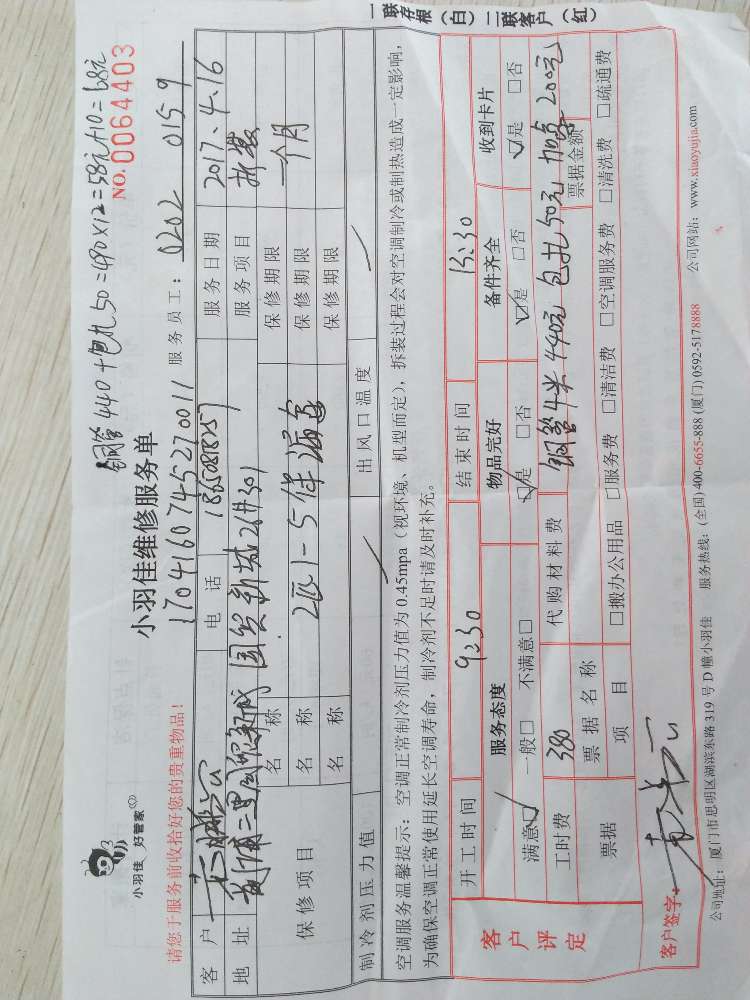 一联存根（白）二联客户（红）
铜管440+包扎50=490×12=58元+10=68元
NO. 0064403
小羽佳 好管家
小羽佳维修服务单
请您于服务前收拾好您的贵重物品！
1704160745270011 服务员工：0202 0159
客户 电话 服务日期 2017.4.16
地址 国贸新城 服务项目 拆装
保修项目 名称 保修期限 一个月
名称 保修期限
名称 保修期限
制冷剂压力值 出风口温度
空调服务温馨提示：空调正常制冷剂压力值为0.45mpa（视环境、机型而定），拆装过程会对空调制冷或制热造成一定影响，
为确保空调正常使用延长空调寿命，制冷剂不足时请及时补充。
客户评定
开工时间 9:30 结束时间 15:30
服务态度 物品完好 备件齐全 收到卡片
满意☑ 一般□ 不满意□ ☑是 □否 ☑是 □否 ☑是 □否
工时费 380 代购材料费 铜管4米440元 包扎50元 200元
票据 票据名称 票据金额
项目 □搬办公用品 □服务费 □清洁费 □空调服务费 □清洗费 □疏通费
客户签字：
公司地址：厦门市思明区湖滨东路319号D幢小羽佳 服务热线：(全国)400-6655-888 (厦门)0592-5178888 公司网站：www.xiaoyujia.com